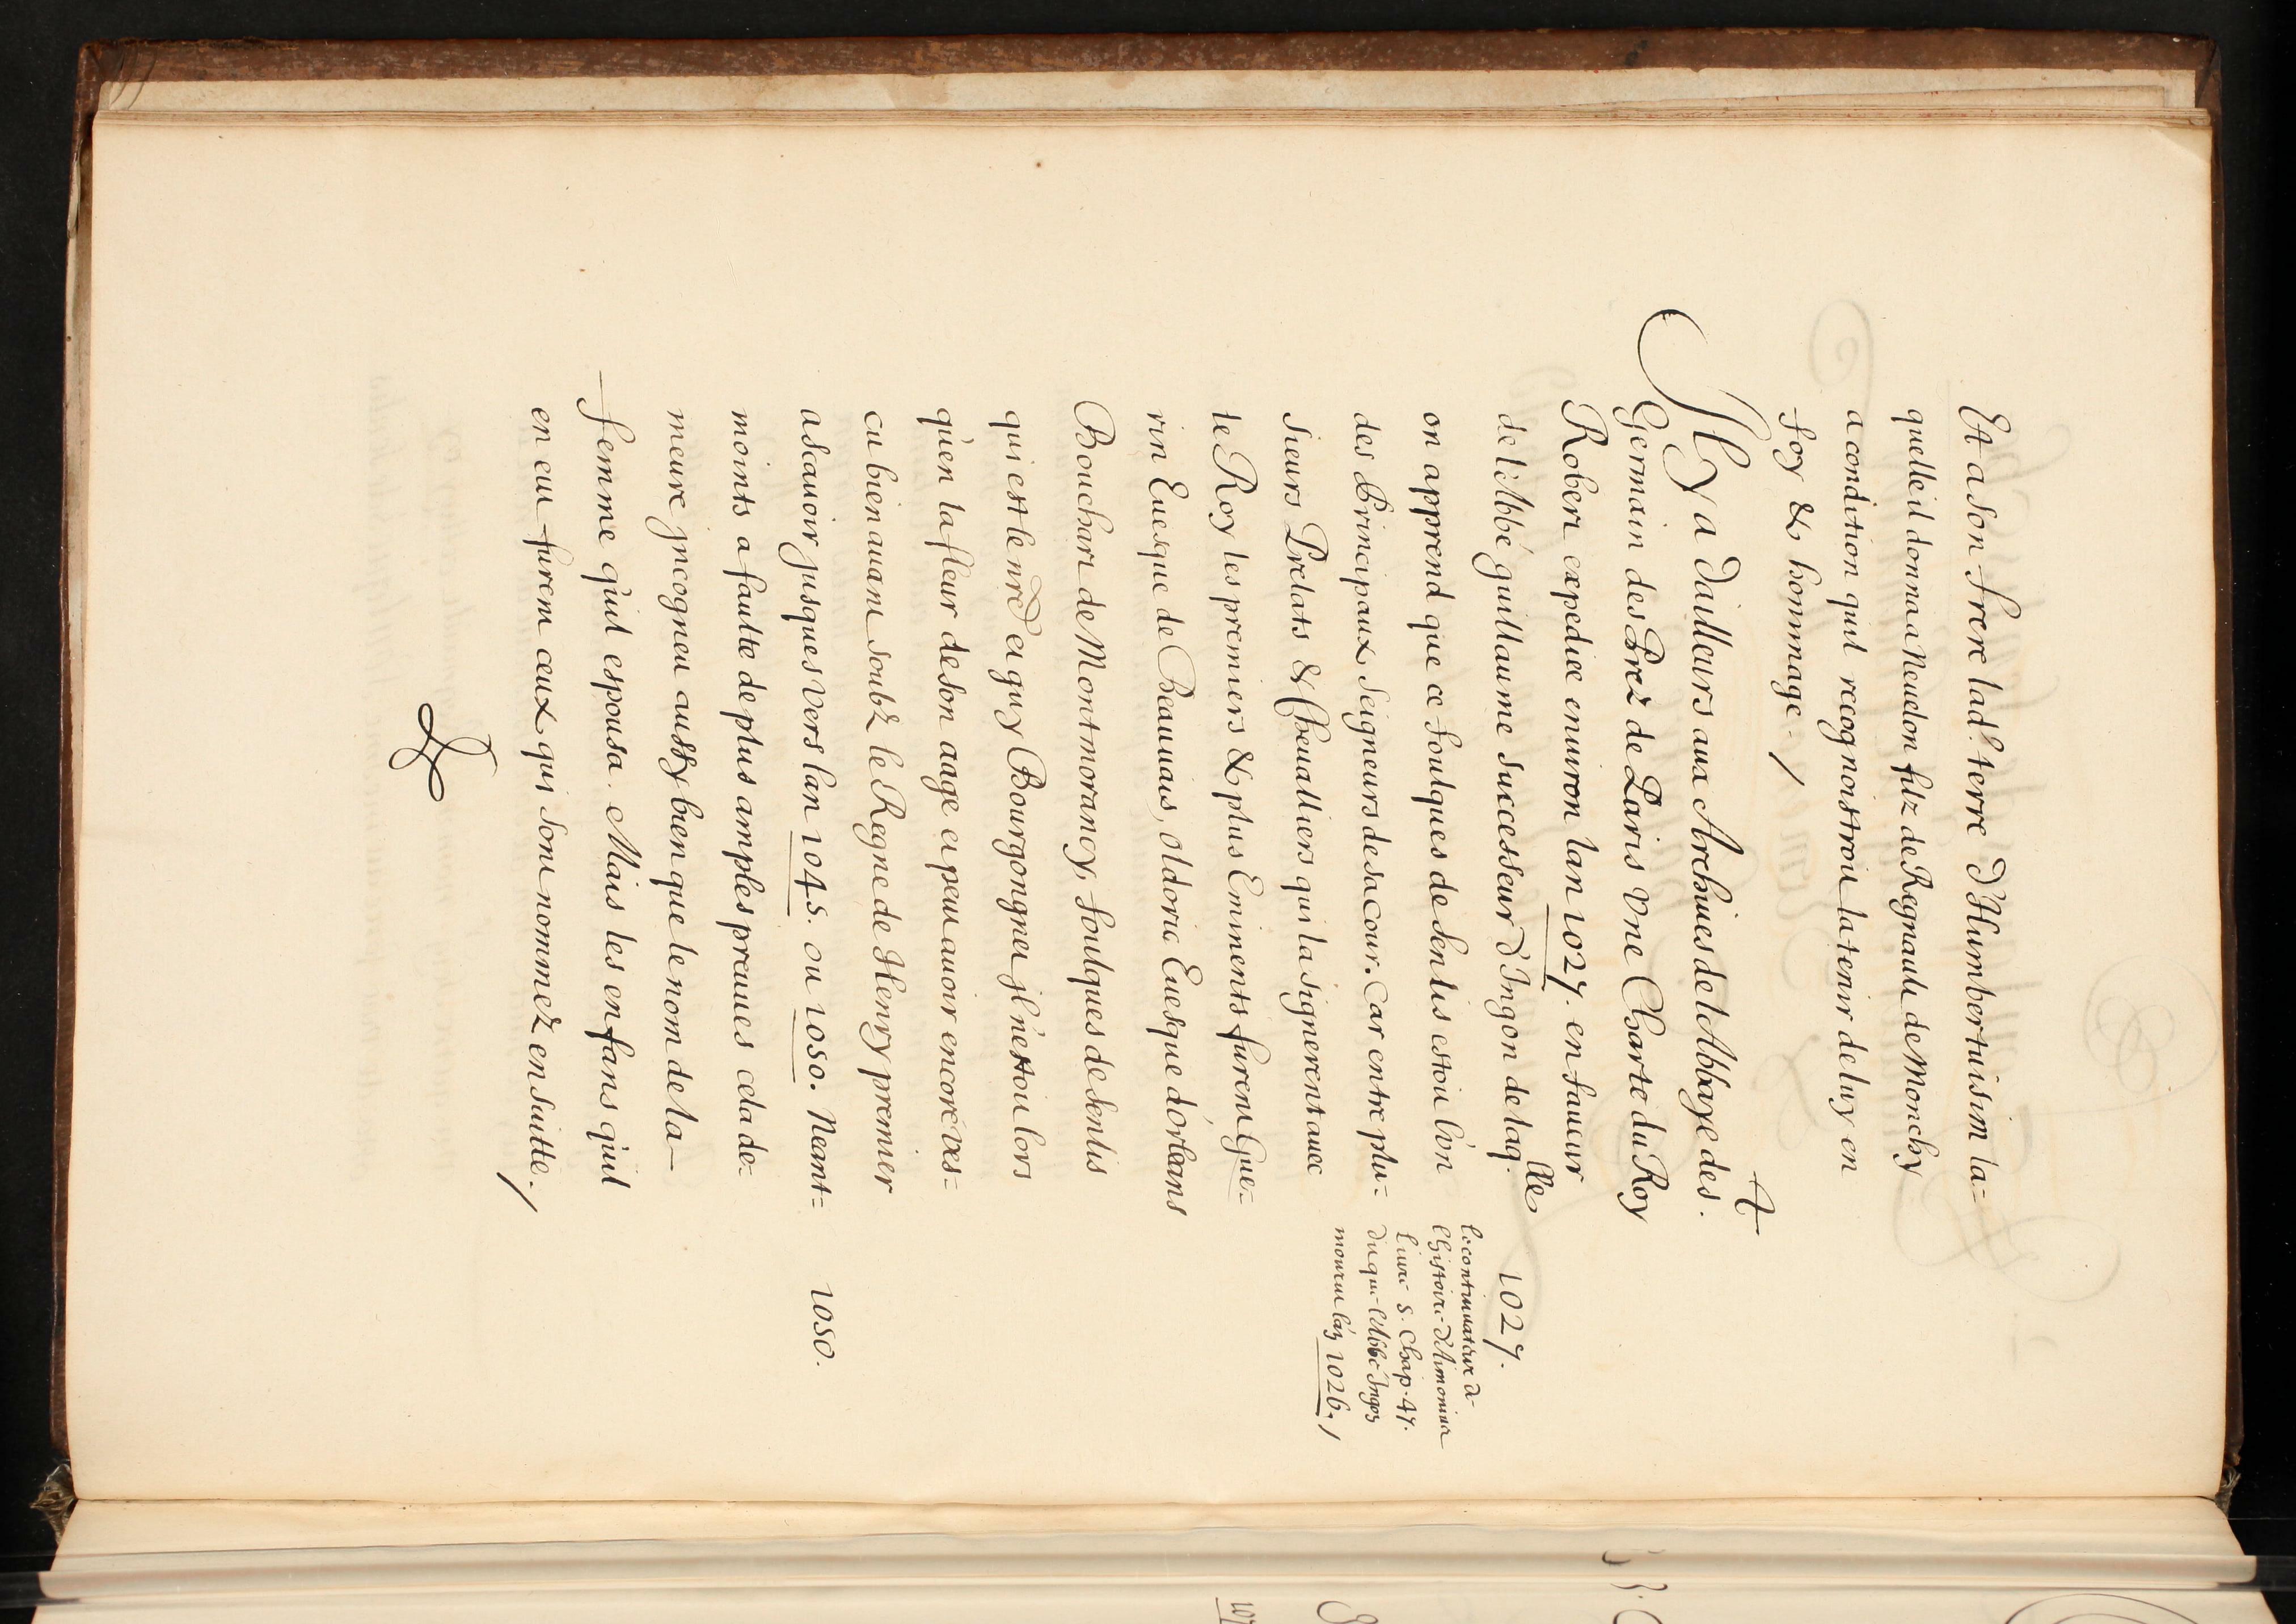 Et a son frere lad.e terre d'Humbertuisin la=
quelle il donna a Neuelon filz de Regnault de Monchy
a condition quil recognoistroit la tenir de luy en
foy & hommage./
Il y a dailleurs aux Archiues de l'Abbaye des.
Germain des Prez de Paris vne Charte du Roy
Robert expediee enuiron lan 1027. en faueur
de l'Abbé guillaume successeur d'Ingon de laq.lle
on apprend que ce foulques de senlis estoit l'on
des Principaux seigneurs de sa cour. car entre plu=
sieurs Prelats & Cheualliers qui la signerent auec
le Roy les premiers & plus Eminents furent Gue=
rin Euesque de Beauuais, Oldoric Euesque d'orleans
Bouchart de Montmorancy, foulques de senlis
qui est le nre et guy Bourgongnet jl n'estoit lors
qu'en la fleur de son aage et peut auoir encore ves=
cu bien auant soubz le Regne de Henry premier
ascauoir jusques vers lan 1045. ou 1050. Neant=
moints a faulte de plus amples preuues cela de=
meure jncogneu aussy bien que le nom de la
femme qu'il espousa. Mais les enfans qu'il
en eut furent ceux qui sont nommez en suitte./
1027.
le continuateur de
l'histoire d'Aimonius
liure 5. Chap. 47.
dit que l'Abbé Ingon
mourut l'an 1026./
1050.